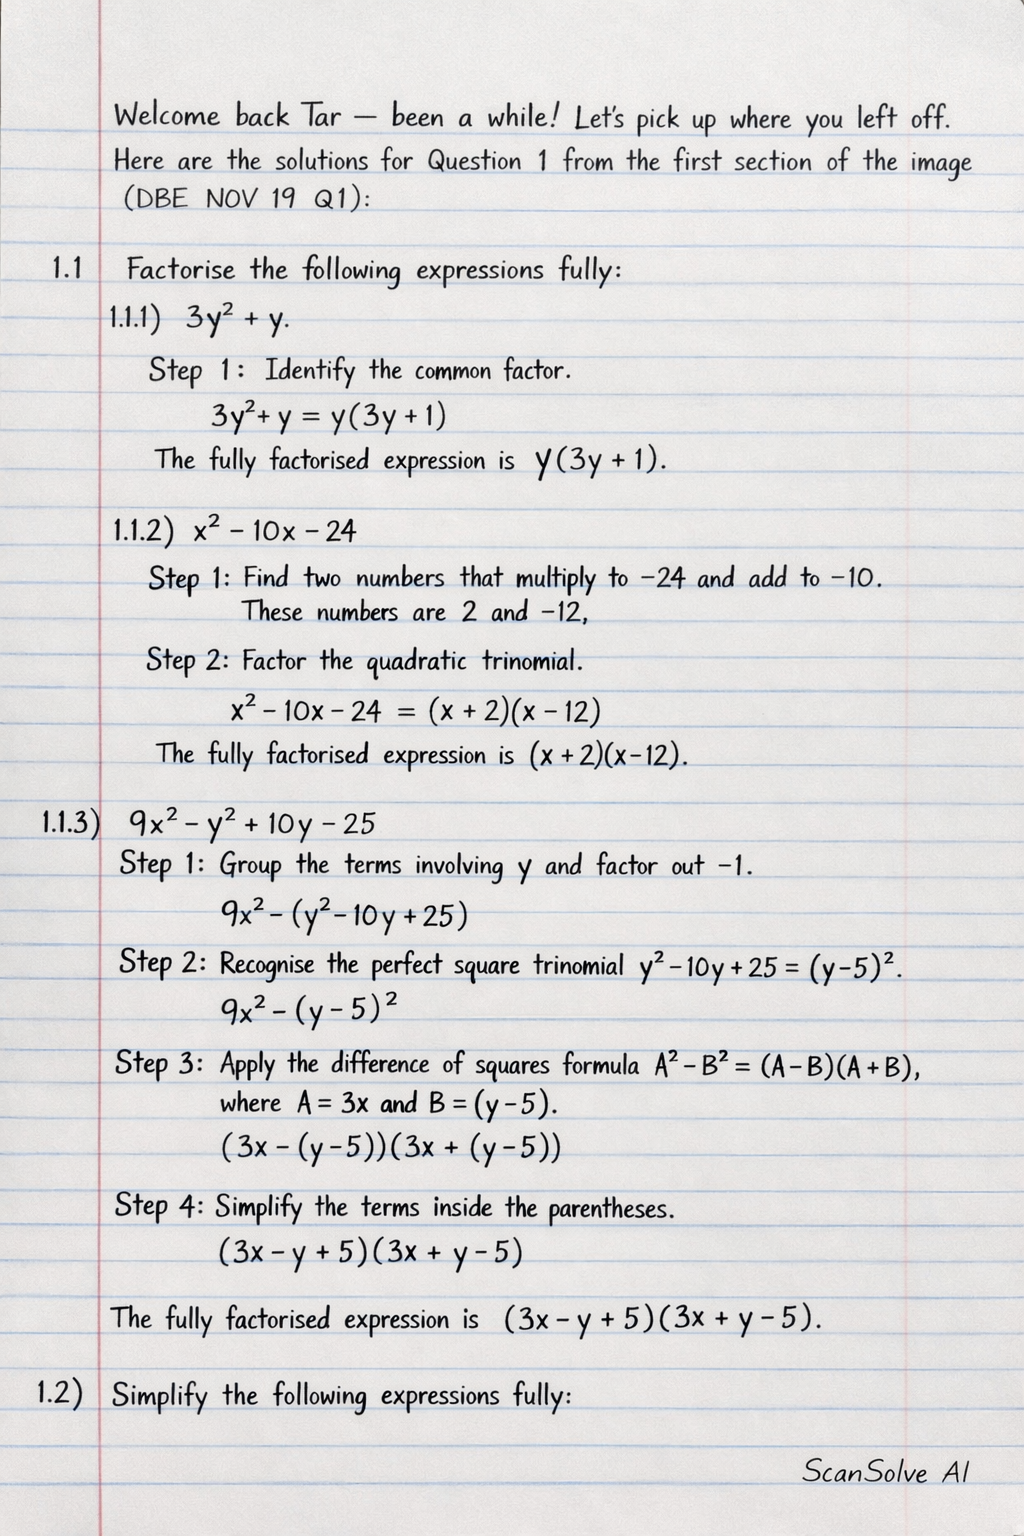 Welcome back Tar — been a while! Let's pick up where you left off.
Here are the solutions for Question 1 from the first section of the image
(DBE NOV 19 Q1):
1.1 Factorise the following expressions fully:
1.1.1) 3y² + y.
Step 1: Identify the common factor.
3y² + y = y(3y + 1)
The fully factorised expression is y(3y + 1).
1.1.2) x² − 10x − 24
Step 1: Find two numbers that multiply to −24 and add to −10.
These numbers are 2 and −12,
Step 2: Factor the quadratic trinomial.
x² − 10x − 24 = (x + 2)(x − 12)
The fully factorised expression is (x + 2)(x − 12).
1.1.3) 9x² − y² + 10y − 25
Step 1: Group the terms involving y and factor out −1.
9x² − (y² − 10y + 25)
Step 2: Recognise the perfect square trinomial y² − 10y + 25 = (y − 5)².
9x² − (y − 5)²
Step 3: Apply the difference of squares formula A² − B² = (A − B)(A + B),
where A = 3x and B = (y − 5).
(3x − (y − 5))(3x + (y − 5))
Step 4: Simplify the terms inside the parentheses.
(3x − y + 5)(3x + y − 5)
The fully factorised expression is (3x − y + 5)(3x + y − 5).
1.2) Simplify the following expressions fully:
ScanSolve AI